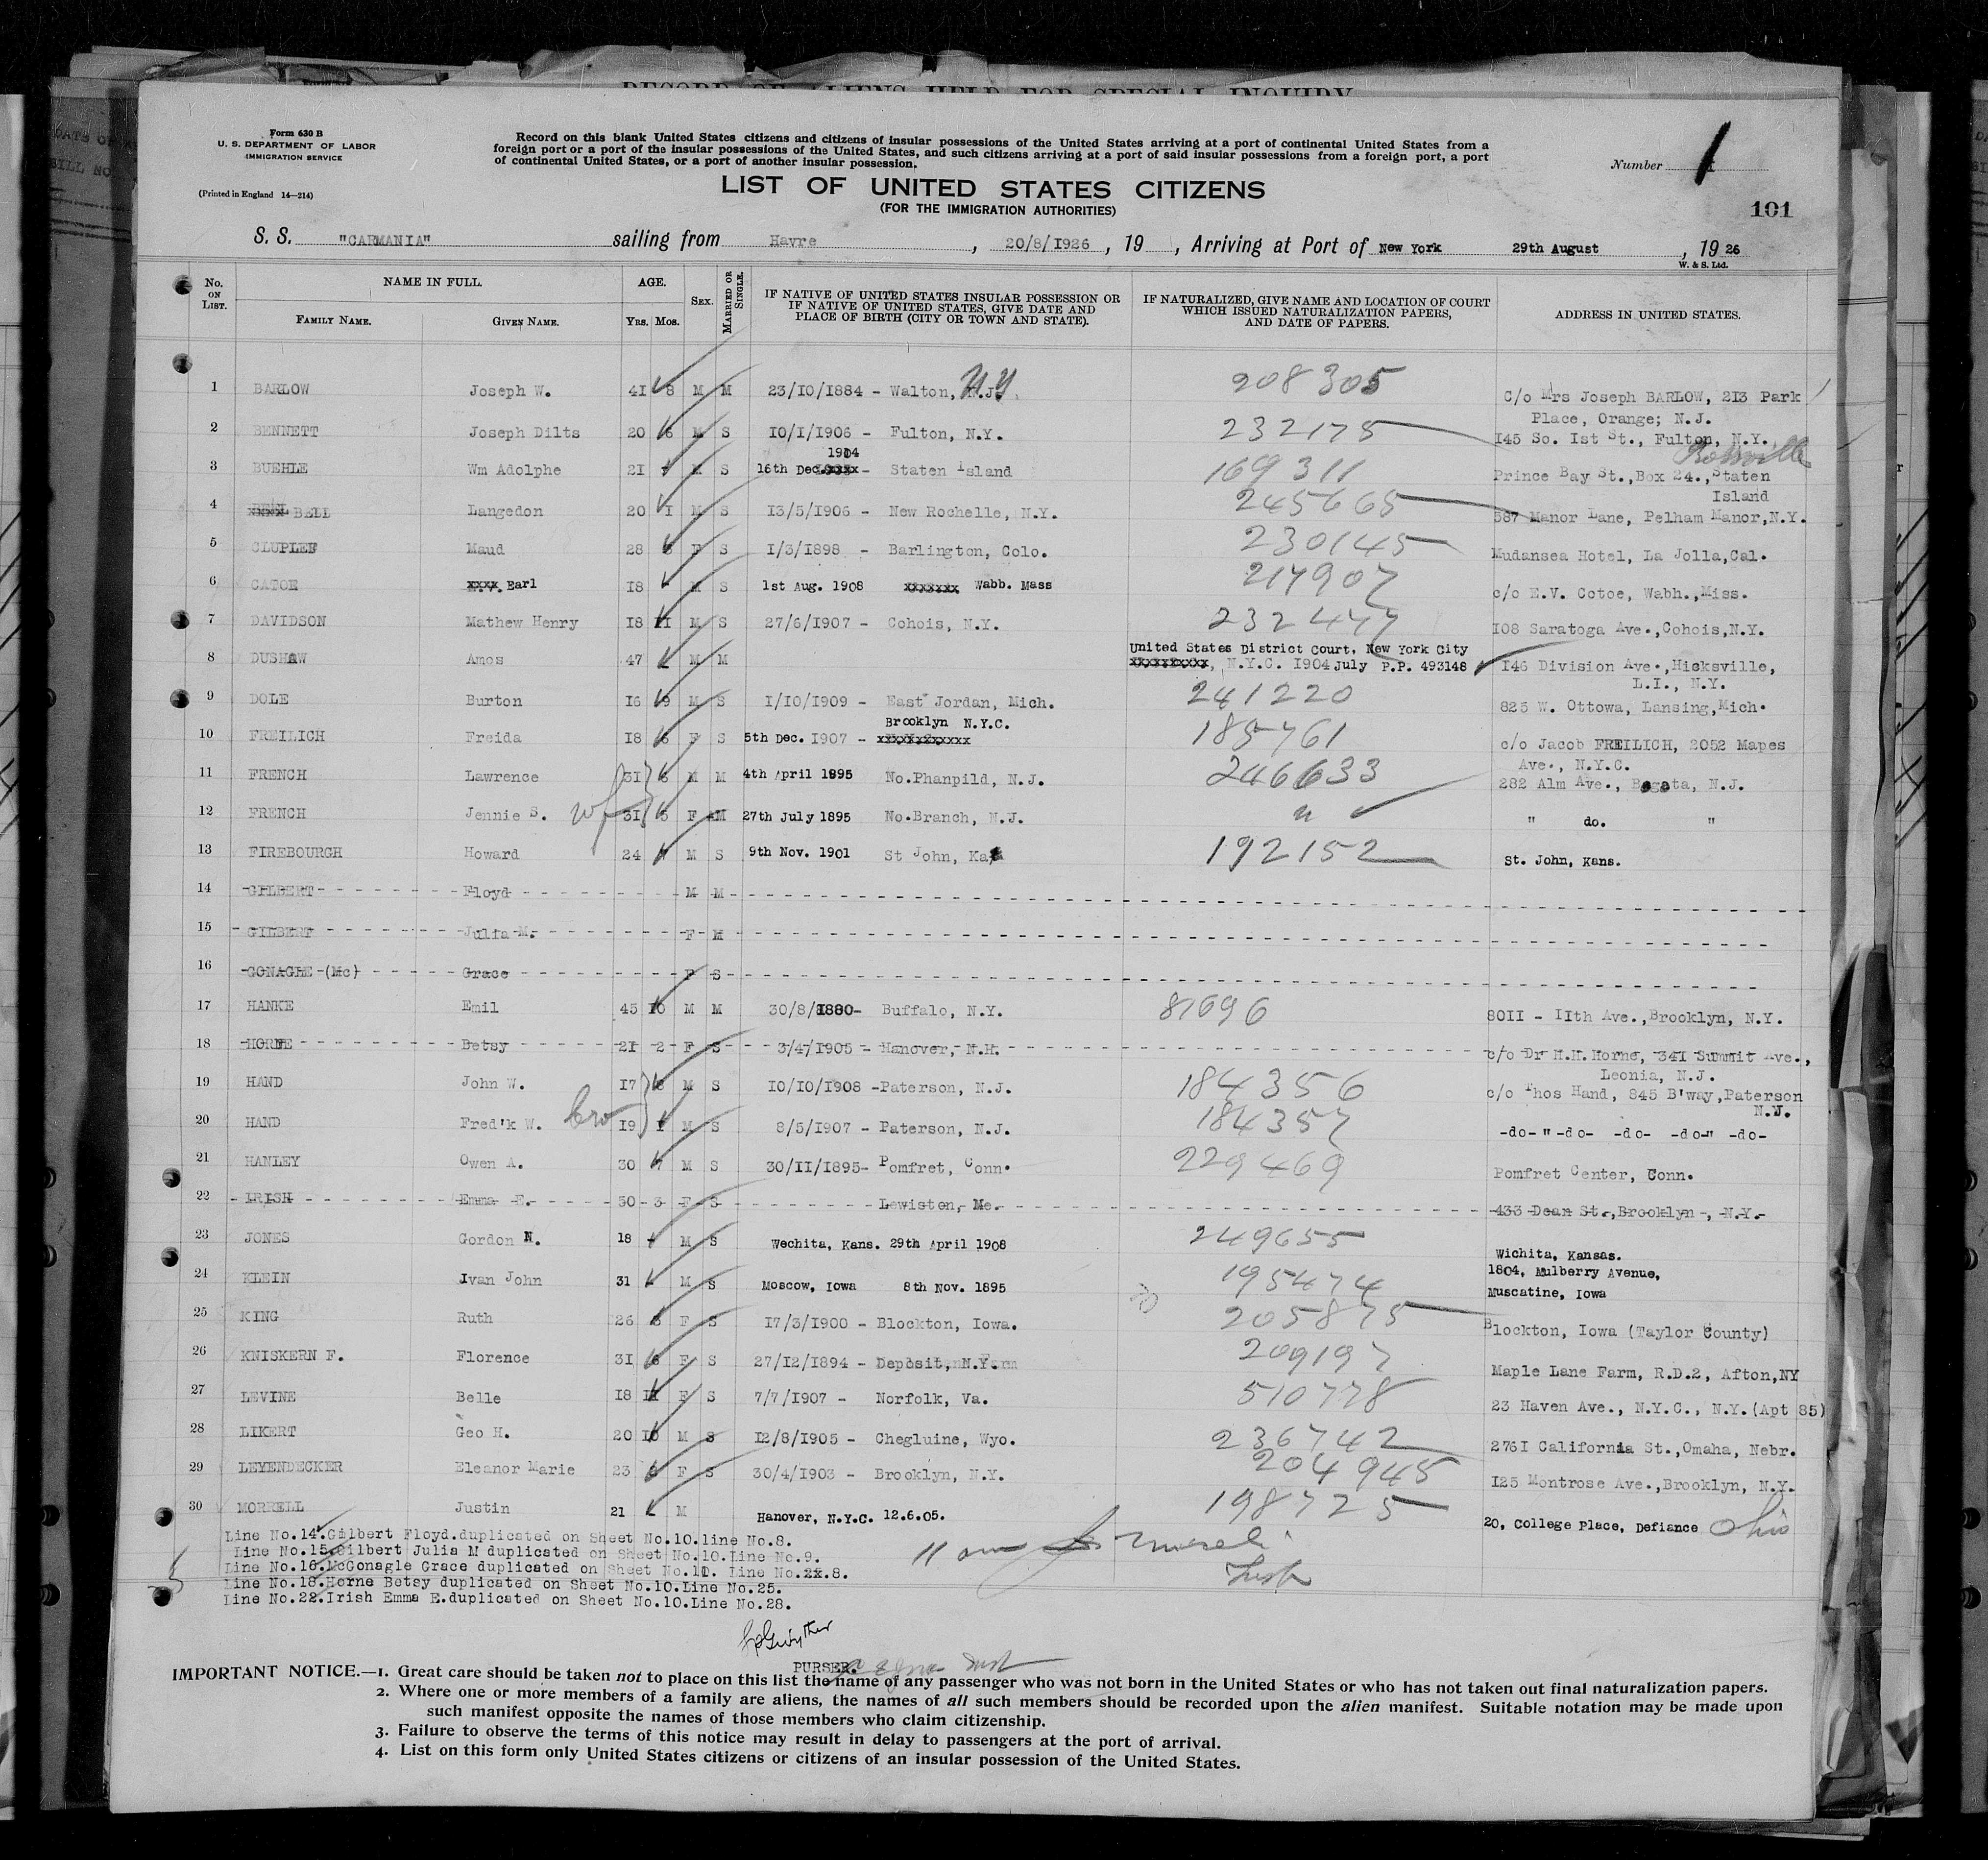 RECORD OF ALIENS HELD FOR SPECIAL INQUIRY
Form 630 B
U. S. DEPARTMENT OF LABOR
IMMIGRATION SERVICE
(Printed in England 14—214)
Record on this blank United States citizens and citizens of insular possessions of the United States arriving at a port of continental United States from a
foreign port or a port of the insular possessions of the United States, and such citizens arriving at a port of said insular possessions from a foreign port, a port
of continental United States, or a port of another insular possession.
Number 1
LIST OF UNITED STATES CITIZENS
(FOR THE IMMIGRATION AUTHORITIES)
101
S. S. "CARMANIA" sailing from Havre, 20/8/1926, 19 , Arriving at Port of New York 29th August, 19 26
W. & S. Ltd.
No. ON LIST. NAME IN FULL. FAMILY NAME. GIVEN NAME. AGE. Yrs. Mos. SEX. MARRIED OR SINGLE.
IF NATIVE OF UNITED STATES INSULAR POSSESSION OR
IF NATIVE OF UNITED STATES, GIVE DATE AND
PLACE OF BIRTH (CITY OR TOWN AND STATE).
IF NATURALIZED, GIVE NAME AND LOCATION OF COURT
WHICH ISSUED NATURALIZATION PAPERS,
AND DATE OF PAPERS.
ADDRESS IN UNITED STATES.
1 BARLOW Joseph W. 41 8 M M 23/10/1884 - Walton, N.J. NY 208305 C/o Mrs Joseph BARLOW, 213 Park
Place, Orange; N.J.
2 BENNETT Joseph Dilts 20 6 M S 10/1/1906 - Fulton, N.Y. 232175 145 So. 1st St., Fulton, N.Y.
Rossville
1904
3 BUEHLE Wm Adolphe 21 M S 16th Dec. xxxx - Staten Island 169311 Prince Bay St.,Box 24.,Staten
Island
4 BELL Langedon 20 1 M S 13/5/1906 - New Rochelle, N.Y. 245665 587 Manor Lane, Pelham Manor,N.Y.
5 CLUPLEF Maud 28 F S 1/3/1898 - Barlington, Colo. 230145 Mudansea Hotel, La Jolla,Cal.
6 CATOE xxxx Earl 18 - M S 1st Aug. 1908 xxxxxxx Wabb. Mass 217907 c/o E.V. Cotoe, Wabh.,Miss.
7 DAVIDSON Mathew Henry 18 11 M S 27/6/1907 - Cohois, N.Y. 232447 108 Saratoga Ave.,Cohois,N.Y.
United States District Court, New York City
8 DUSHAW Amos 47 M M xxxxxxxxx, N.Y.C. 1904 July P.P. 493148 146 Division Ave.,Hicksville,
L.I., N.Y.
9 DOLE Burton 16 9 M S 1/10/1909 - East Jordan, Mich. 241220 825 W. Ottowa, Lansing,Mich.
Brooklyn N.Y.C.
10 FREILICH Freida 18 6 F S 5th Dec. 1907 - xxxxxxxxxxx 185761 c/o Jacob FREILICH, 2052 Mapes
Ave., N.Y.C.
11 FRENCH Lawrence 31 M M 4th April 1895 No.Phanpild, N.J. 246633 282 Alm Ave., Bogota, N.J.
12 FRENCH Jennie S. wf 31 5 F M 27th July 1895 No.Branch, N.J. " " do. "
13 FIREBOURGH Howard 24 M S 9th Nov. 1901 St John, Kas 192152 St. John, Kans.
14 GILBERT Floyd M M
15 GILBERT Julia M. F M
16 GONAGLE (Mc) Grace F S
17 HANKE Emil 45 10 M M 30/8/1880- Buffalo, N.Y. 81696 8011 - 11th Ave.,Brooklyn, N.Y.
18 HORNE Betsy 21 2 F S 3/4/1905 - Hanover, N.H. c/o Dr H.H. Horne, 341 Summit Ave.,
Leonia, N.J.
19 HAND John W. 17 M S 10/10/1908 -Paterson, N.J. 184356 c/o Thos Hand, 845 B'way,Paterson
N.J.
20 HAND Fred'k W. bro 19 1 M S 8/5/1907 - Paterson, N.J. 184357 -do- " -do- -do- -do-" -do-
21 HANLEY Owen A. 30 7 M S 30/11/1895- Pomfret, Conn. 229469 Pomfret Center, Conn.
22 IRISH Emma E. 50 3 F S Lewiston, Me. 433 Dean St.,Brooklyn, N.Y.
23 JONES Gordon N. 18 - M S Wechita, Kans. 29th April 1908 249655 Wichita, Kansas.
24 KLEIN Ivan John 31 M S Moscow, Iowa 8th Nov. 1895 195474 1804, Mulberry Avenue,
Muscatine, Iowa
25 KING Ruth 26 F S 17/3/1900 - Blockton, Iowa. 205875 Blockton, Iowa (Taylor County)
26 KNISKERN F. Florence 31 6 F S 27/12/1894 - Deposit, N.Y. 209197 Maple Lane Farm, R.D.2, Afton,NY
27 LEVINE Belle 18 11 F S 7/7/1907 - Norfolk, Va. 510778 23 Haven Ave., N.Y.C., N.Y.(Apt 85)
28 LIKERT Geo H. 20 10 M S 12/8/1905 - Chegluine, Wyo. 236742 2761 California St.,Omaha, Nebr.
29 LEYENDECKER Eleanor Marie 23 F S 30/4/1903 - Brooklyn, N.Y. 204945 125 Montrose Ave.,Brooklyn, N.Y.
30 MORRELL Justin 21 M Hanover, N.Y.C. 12.6.05. 198725 20, College Place, Defiance Ohio
Line No.14.Gilbert Floyd.duplicated on Sheet No.10.line No.8.
Line No.15.Gilbert Julia M duplicated on Sheet No.10.Line No.9.
Line No.16.McGonagle Grace duplicated on Sheet No.11. Line No.xx.8.
Line No.18.Horne Betsy duplicated on Sheet No.10.Line No.25.
Line No.22.Irish Emma E.duplicated on Sheet No.10.Line No.28.
PURSER.
IMPORTANT NOTICE.—1. Great care should be taken not to place on this list the name of any passenger who was not born in the United States or who has not taken out final naturalization papers.
2. Where one or more members of a family are aliens, the names of all such members should be recorded upon the alien manifest. Suitable notation may be made upon
such manifest opposite the names of those members who claim citizenship.
3. Failure to observe the terms of this notice may result in delay to passengers at the port of arrival.
4. List on this form only United States citizens or citizens of an insular possession of the United States.